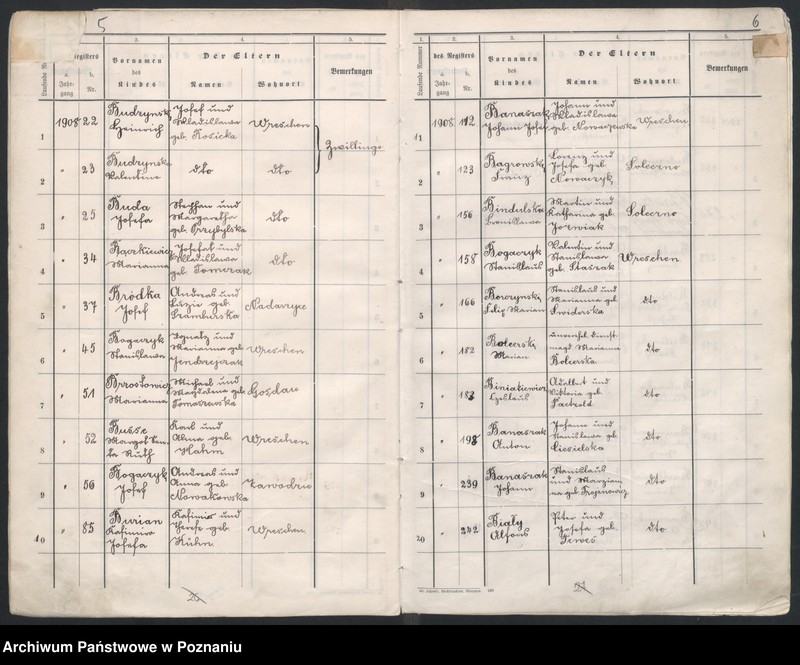 5
3.
4.
5.
Registers
Vornamen
des
Kindes
Der Eltern
Namen
Wohnort
Bemerkungen
Laufende Nr.
a.
Jahr-
gang
b.
Nr.
1
1908 22
Budzynski
Heinrich
Josef und
Wladislawa
geb. Kosicka
Wreschen
Zwillinge
2
" 23
Budzynska
Valentine
dto
dto
3
" 25
Buda
Josefa
Stephan und
Margaretha
geb. Przybylska
dto
4
" 34
Marianna
Josefat und
Wladislawa
dto
5
" 37
Bródka
Josef
Andreas und
Luzie geb.
Szamburska
Nadarzyce
6
" 45
Bogaczyk
Stanislawa
Ignatz und
Marianna geb.
Jendrzejak
Wreschen
7
" 51
Brzostowicz
Marianna
Michael und
Magdalena geb.
Tomaszewska
Gozdowo
8
" 52
Busse
Ruth
Karl und
Alma geb.
Hahm
Wreschen
9
" 56
Bogaczyk
Josef
Andreas und
Anna geb.
Nowakowska
Zawodzie
10
" 85
Burian
Kasimira
Josefa
Kasimir und
Therese geb.
Kühn
Wreschen
6
1.
2.
3.
4.
5.
Laufende Nummer
des Registers
Vornamen
des
Kindes
Der Eltern
Namen
Wohnort
Bemerkungen
a.
Jahr-
gang
b.
Nr.
11
1908 112
Banaszak
Johann Josef
Johann und
Wladislawa
geb. Nowaczewska
Wreschen
2
" 123
Bagrowski
Franz
Lorenz und
Josefa geb.
Nowaczyk
Soleczno
3
" 156
Bindulska
Bronislawa
Martin und
Katharina geb.
Jozwiak
Soleczno
4
" 158
Bogaczyk
Stanislaus
Valentin und
Stanislawa
geb. Staszak
Wreschen
5
" 166
Boroczynski
Filip Marian
Stanislaus und
Marianna geb.
Swiderska
dto
6
" 182
Marian
unverehel. Dienst-
magd Marianna
dto
7
" 183
Biniakiewicz
Ceslaus
Adalbert und
Viktoria geb.
Paetzold
dto
8
" 198
Banaszak
Anton
Johann und
Stanislawa geb.
Ciesielska
dto
9
" 239
Banaszak
Johann
Stanislaus
und Marian-
na geb.
dto
20
" 242
Biały
Alfons
Peter und
Josefa geb.
Drwes
dto
Archiwum Państwowe w Poznaniu